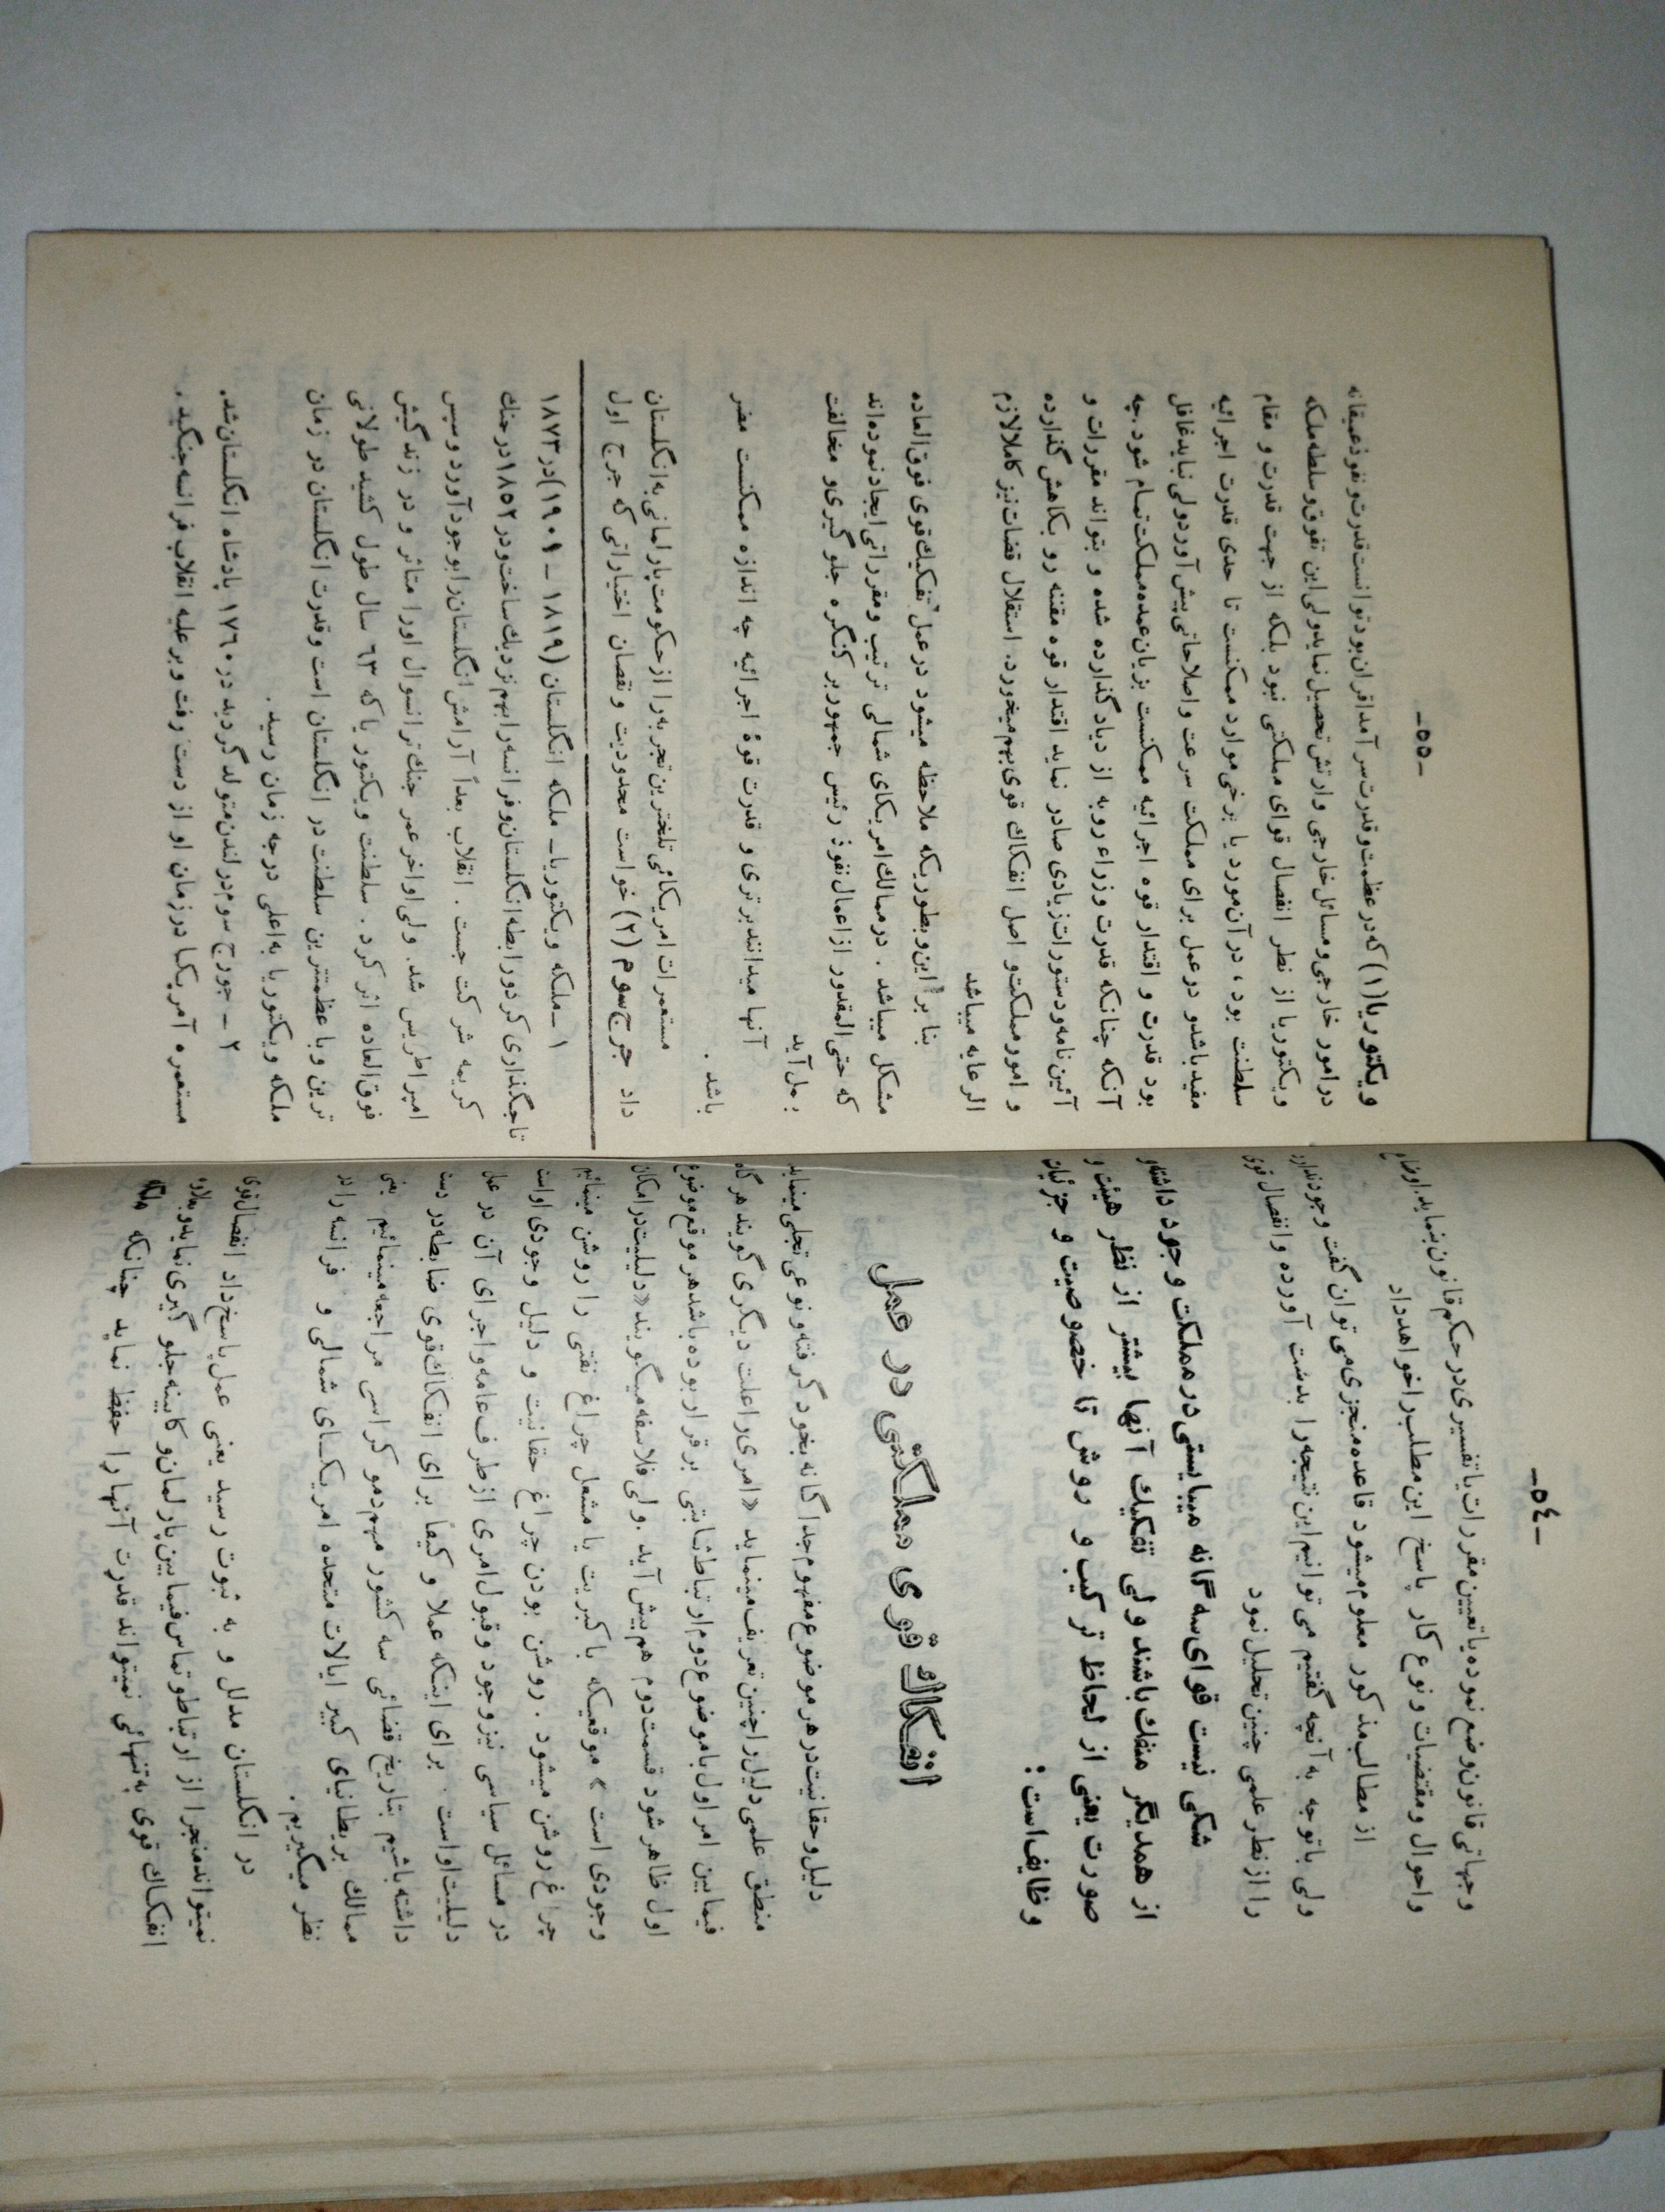 -٥٤-
وجهاتی قانون وضع نموده یا تعیین مقررات یا تفسیری در حکم قانون بنماید. اوضاع
واحوال ومقتضیات و نوع کار پاسخ این مطلب را خواهد داد
از مطالب مذکور معلوم میشود قاعده منجزی می توان گفت وجود ندارد
ولی باتوجه به آنچه گفتیم می توانیم این نتیجه را بدست آورده وانفصال قوی
را از نظر علمی چنین تحلیل نمود
شکی نیست قوای سه گانه میبایستی در مملکت وجود داشته و
از همدیگر منفك باشند ولی تفکیك آنها بیشتر از نظر هیئت و
صورت یعنی از لحاظ ترکیب و روش تا خصوصیت و جزئیات
وظایف است :
انفکاك قوی مملکتی در عمل
دلیل وحقانیت در هر موضوع مفهوم جداگانه بخود گرفته و نوعی تجلی مینماید
منطق علمی دلیل را چنین تعریف مینماید «امری را علت دیگری گویند هر گاه
فیمابین امر اول با موضوع دوم ارتباط ثابتی برقرار بوده باشد هر موقع موضوع
اول ظاهر شود قسمت دوم هم پیش آید . ولی فلاسفه میگویند «دلیلیت در امکان
وجودی است » موقعیکه با کبریت یا مشعل چراغ نفتی را روشن مینمائیم
چراغ روشن میشود . روشن بودن چراغ حقانیت و دلیل وجودی اواست
در مسائل سیاسی نیز وجود وقبول امری از طرف عامه واجرای آن در عمل
دلیلیت اواست . برای اینکه عملا و کیفاً برای انفکاك قوی ضابطه در دست
داشته باشیم بتاریخ قضائی سه کشور مهم دمو کراسی مراجعه مینمائیم یعنی
ممالك بریطانیای کبیر ایالات متحده امریکای شمالی و فرانسه را در
نظر میگیریم .
در انگلستان مدلل و به ثبوت رسید یعنی عمل پاسخ داد انفصال قوی
نمیتواند منجرا از ارتباط وتماس فیمابین پارلمان و کابینه جلو گیری نماید وبعلاوه
انفکاك قوی به تنهائی نمیتواند قدرت آنها را حفظ نماید چنانکه ملکه
-٥٥-
ویکتوریا (١) که در عظمت وقدرت سر آمد اقران بود توانست قدرت و نفوذ عمیقانه
در امور خارجی ومسائل خارجی وارتش تحصیل نماید ولی این تفوق و سلطه ملکه
ویکتوریا از نظر انفصال قوای مملکتی نبود بلکه از جهت قدرت و مقام
سلطنت بود ، در آن مورد یا برخی موارد ممکنست تا حدی قدرت اجرائیه
مفید باشد و در عمل برای مملکت سرعت واصلاحاتی پیش آورد ولی نباید غافل
بود قدرت و اقتدار قوه اجرائیه ممکنست بزیان عمده مملکت تمام شود . چه
آنکه چنانکه قدرت وزراء روبه از دیاد گذارده شده و بتواند مقررات و
آئین نامه و دستورات زیادی صادر نماید اقتدار قوه مقننه رو بکاهش گذارده
و امور مملکت و اصل انفکاك قوی بهم میخورد. استقلال قضات نیز کاملا لازم
الرعایه میباشد
بنا بر این و بطوریکه ملاحظه میشود در عمل تفکیك قوی فوق العاده
مشکل میباشد . در ممالك امریکای شمالی ترتیب ومقرراتی ایجاد نبوده اند
که حتی المقدور از اعمال نفوذ رئیس جمهور بر کنگره جلو گیری و مخالفت
بعمل آید
آنها میدانند برتری و قدرت قوۀ اجرائیه چه اندازه ممکنست مضر
باشد .
مستعمرات امریکائی تلخترین تجربه را از حکومت پارلمانی به انگلستان
داد جرج سوم (٢) خواست محدودیت و نقصان اختیاراتی که جرج اول
١ - ملکه ویکتوریا- ملکه انگلستان (١٨١٩ - ١٩٠١) در ١٨٧٣
تاجگذاری کرد ورابطه انگلستان و فرانسه را بهم نزدیك ساخت و در ١٨٥٢ در جنك
کریمه شرکت جست . انقلاب بعداً آرامش انگلستان را بوجود آورد و سپس
امپراطریس شد. ولی اواخر عمر جنك ترانسوال اورا متاثر و در زندگیش
فوق العاده اثر کرد . سلطنت ویکتوریا که ٦٣ سال طول کشید طولانی
ترین وبا عظمتترین سلطنت در انگلستان است وقدرت انگلستان در زمان
ملکه ویکتوریا به اعلی درجه زمان رسید .
٢ - جورج سوم در لندن متولد گردید در ١٧٦٠ پادشاه انگلستان شد.
مستعمره آمریکا در زمان او از دست رفت و بر علیه انقلاب فرانسه جنگید .